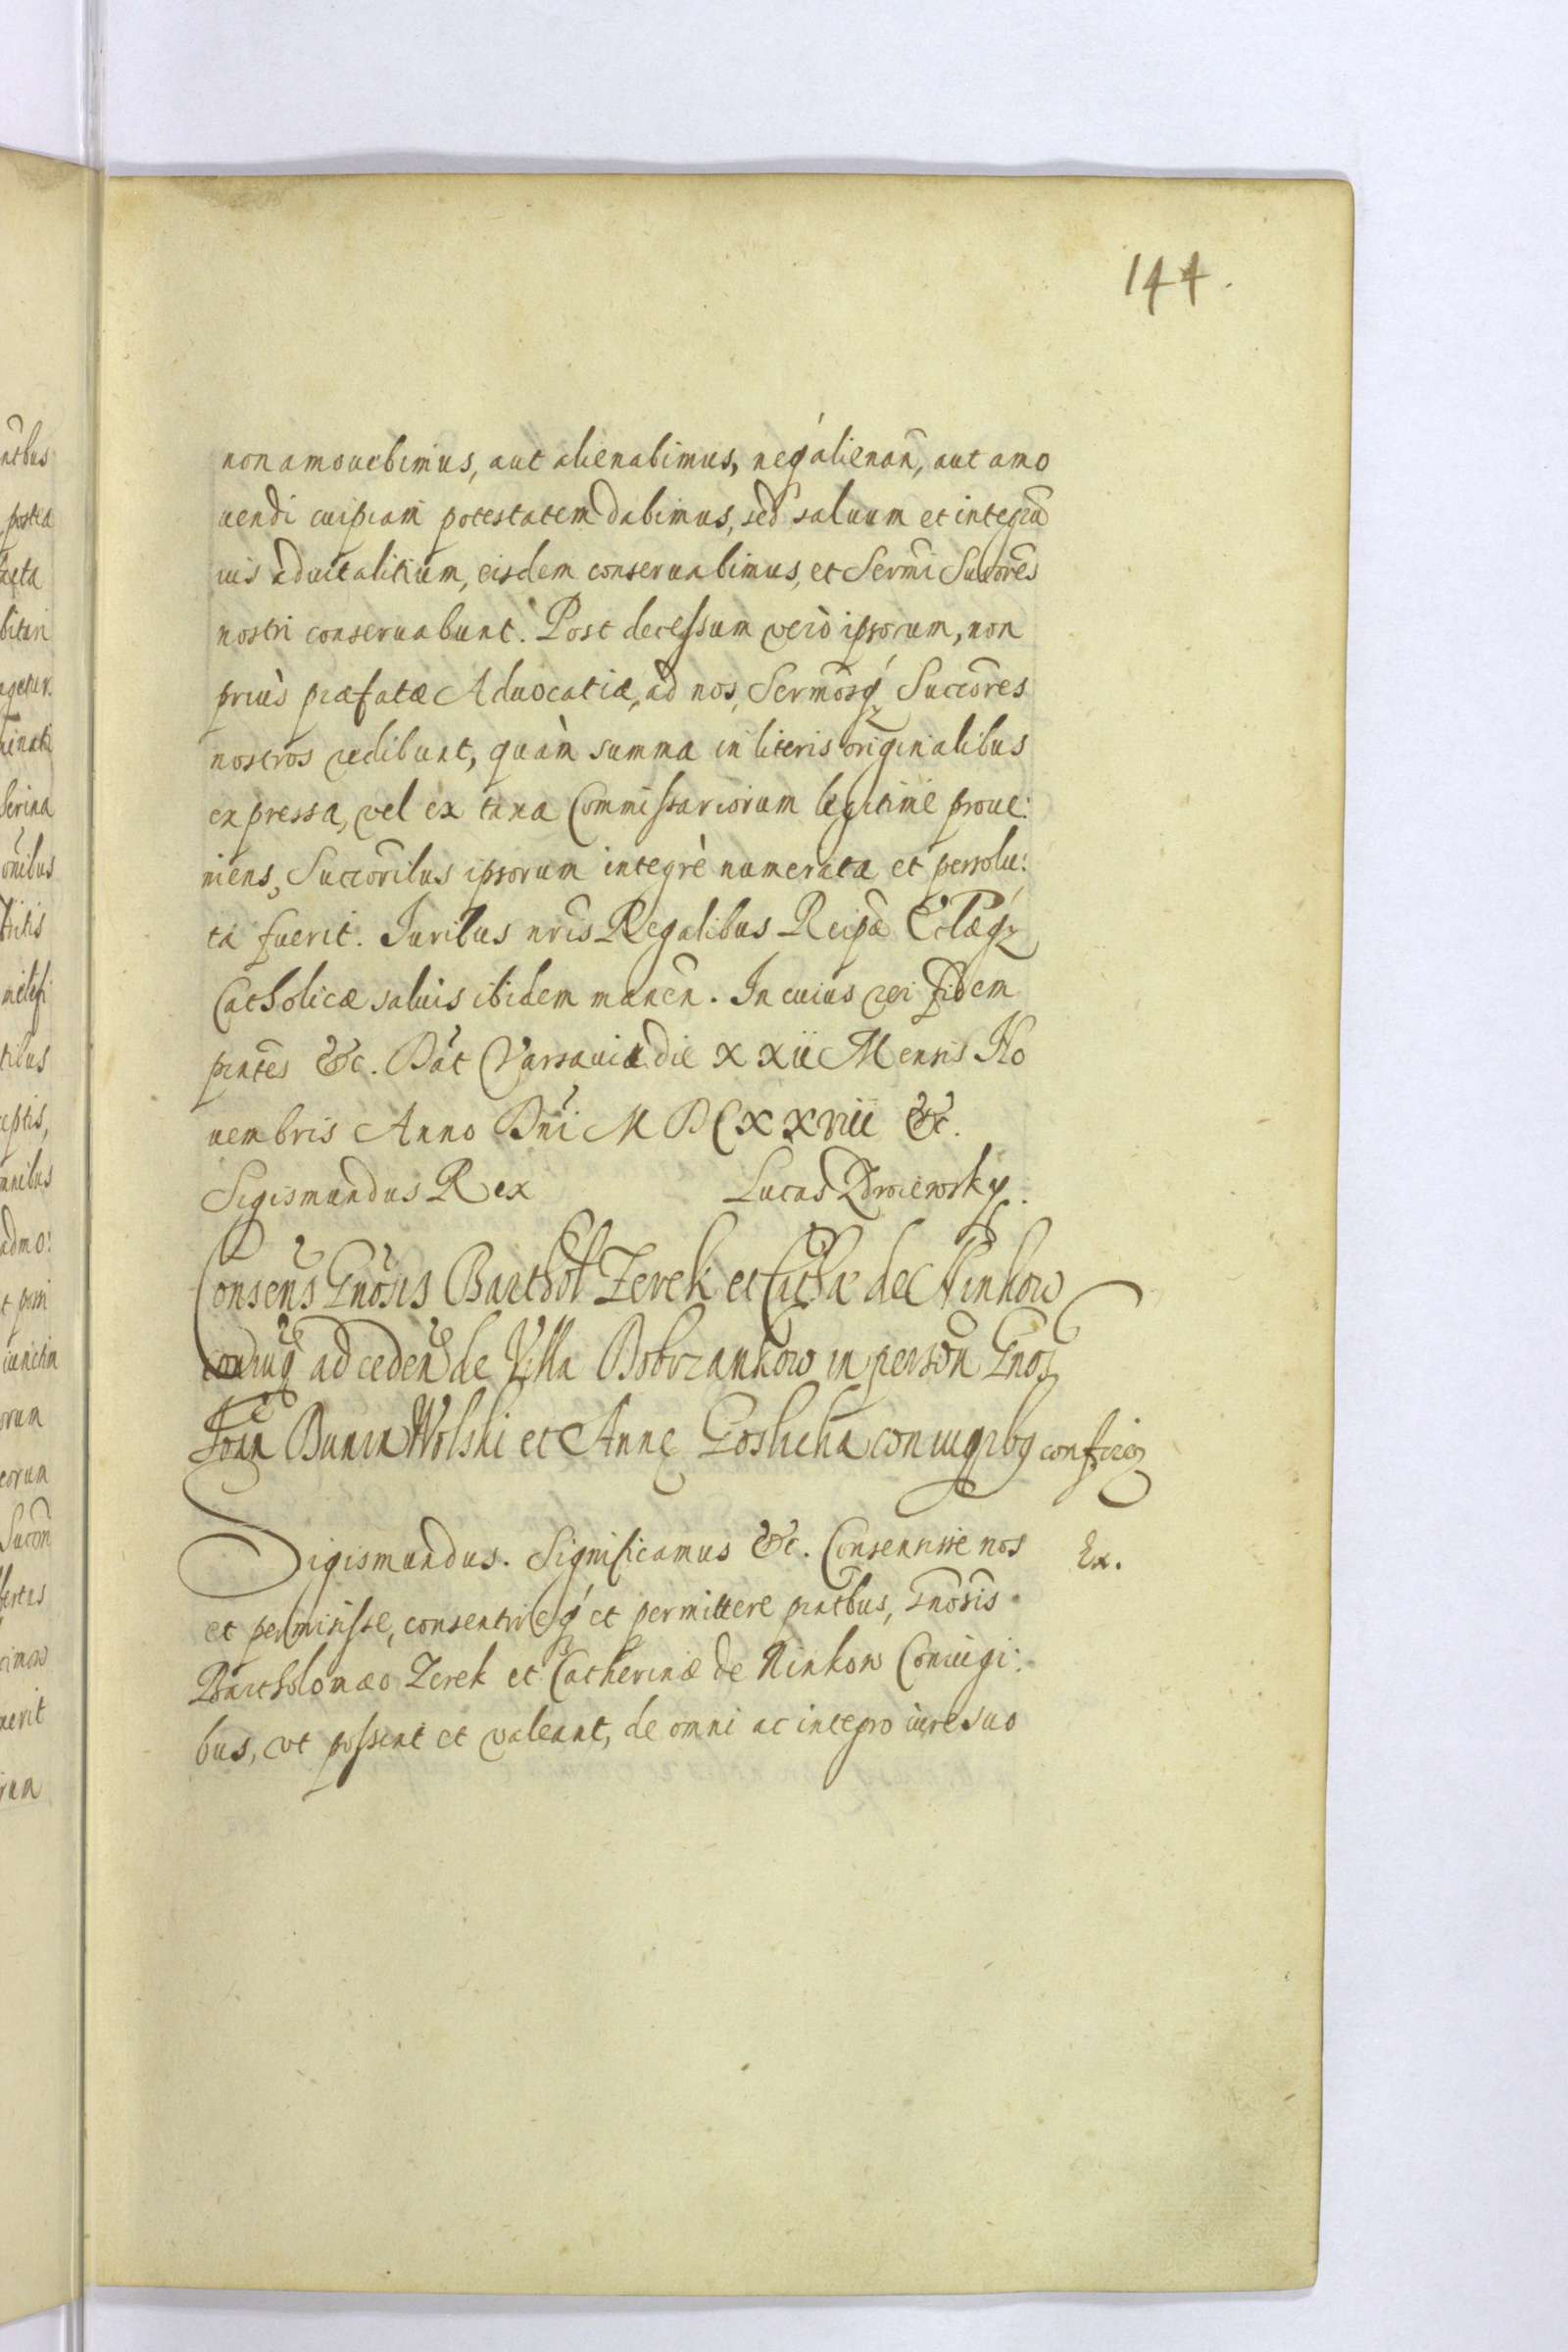 144.
non amouebimus, aut alienabimus, neq́ alienan̄, aut amo
uendi cuipiam potestatem dabimus, sed saluum et integrū
ius aduitalitium, eisdem conseruabimus, et Serm̄i Succōres
nostri conseruabunt. Post decessum verò ipsorum, non
priùs præfatæ Aduocatiæ, ad nos, Serm̄osq́ Succōres
nostros redibunt, quàm summa in literis originalibus
expressa, vel ex taxa Commissariorum legitimè proue:
niens, Succōribus ipsorum integrè numerata et persolu:
ta fuerit. Iuribus nr̄is Regalibus Reipæ Ecclæq́
Catholicæ saluis ibidem manen̄. In cuius rei fidem
pn̄tes &c. Dat Varsauiæ die XXII Mensis No
uembris Anno Dn̄i MDCXXVIII &c.
Sigismundus Rex Lucas Zdroiewsky.
Consens Gn̄osis Barthol Zerek et Cathæ de Ninkow
coniug ad ceden̄ de Villa Bobrzankow in person̄ Gnos
Joan̄ Bunin Wolski et Annę Goslicka coniugibq confirm
Sigismundus. Significamus &c. Consensisse nos
Ex.
et permisisse, consentireq́ et permittere pn̄tbus, Gn̄osis
Bartholomæo Zerek et Catherinæ de Ninkow Coniugi:
bus, vt possint et valeant, de omni ac integro iure suo